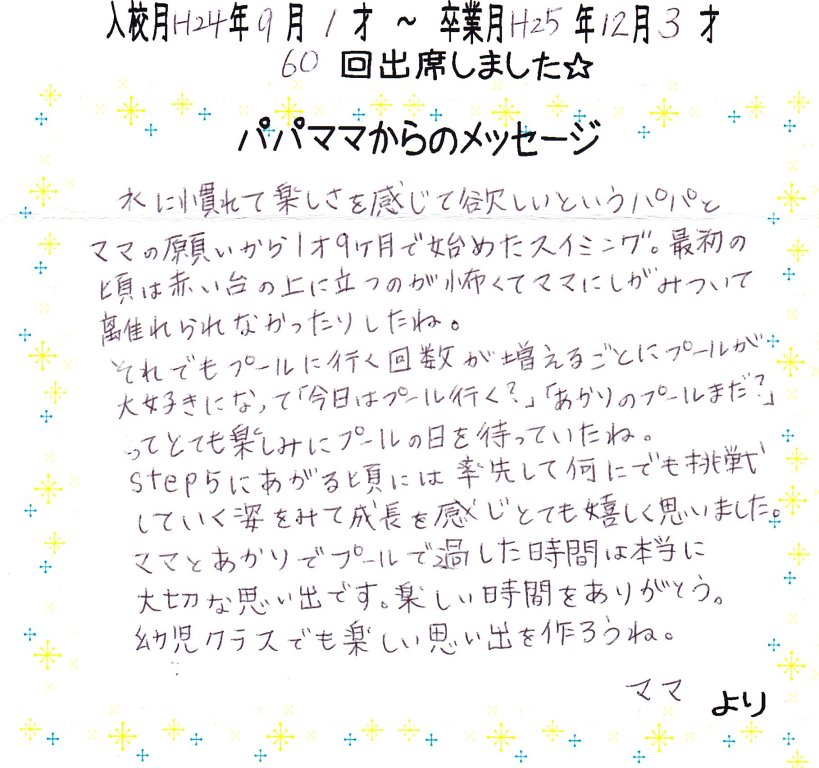 入校月H24年9月1才～卒業月H25年12月3才
60回出席しました☆
パパママからのメッセージ
水に慣れて楽しさを感じて欲しいというパパと
ママの願いから1才9ヶ月で始めたスイミング。最初の
頃は赤い台の上に立つのが怖くてママにしがみついて
離れられなかったりしたね。
それでもプールに行く回数が増えるごとにプールが
大好きになって「今日はプール行く？」「あかりのプールまだ？」
ってとても楽しみにプールの日を待っていたね。
step5にあがる頃には率先して何にでも挑戦
していく姿をみて成長を感じとても嬉しく思いました。
ママとあかりでプールで過した時間は本当に
大切な思い出です。楽しい時間をありがとう。
幼児クラスでも楽しい思い出を作ろうね。
ママより